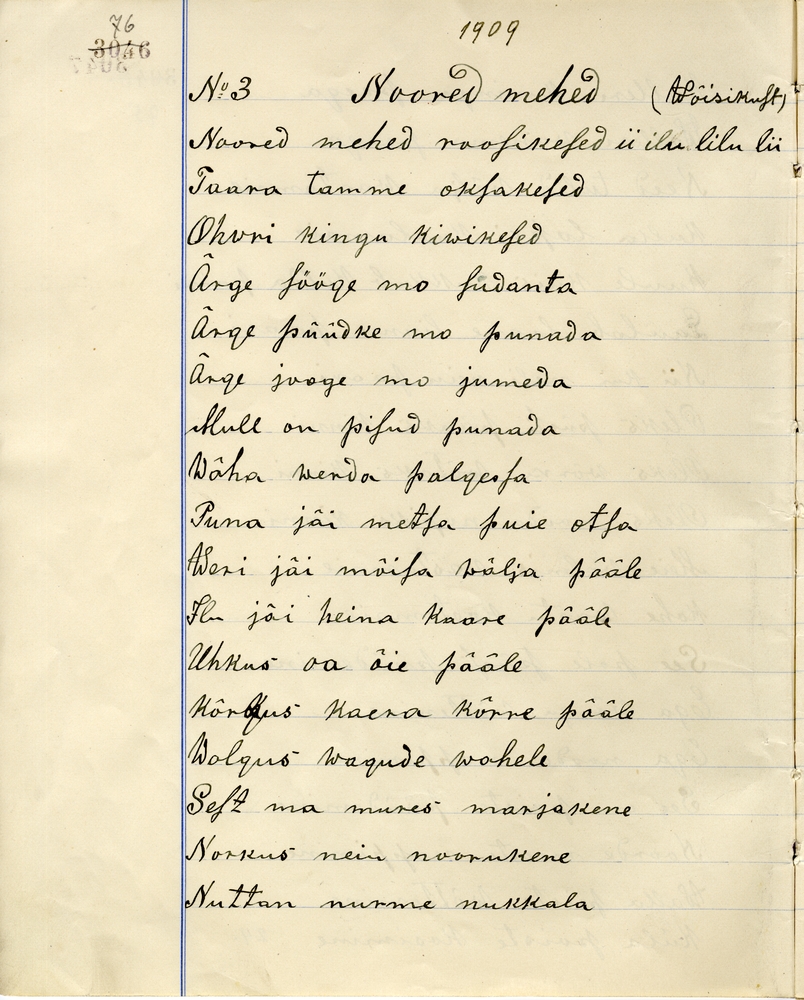 76
3046
1909
№ 3 Noored mehed (Wõisikust)
Noored mehed roosikesed ii ilu lilu lii
Taara tamme oksakesed
Ohvri kingu kiwikesed
Ärge sööge mo südanta
Ärge püüdke mo punada
Ärge jooge mo jumeda
Mull on pisud punada
Wäha werda palgessa
Puna jäi metsa puie otsa
Weri jäi mõisa wälja pääle
Ilu jäi heina kaare pääle
Uhkus oa õie pääle
Kõrgus kaera kõrre pääle
Walgus wagude wahele
Sest ma mures marjakene
Norkus neiu noorukene
Nuttan nurme nukkala